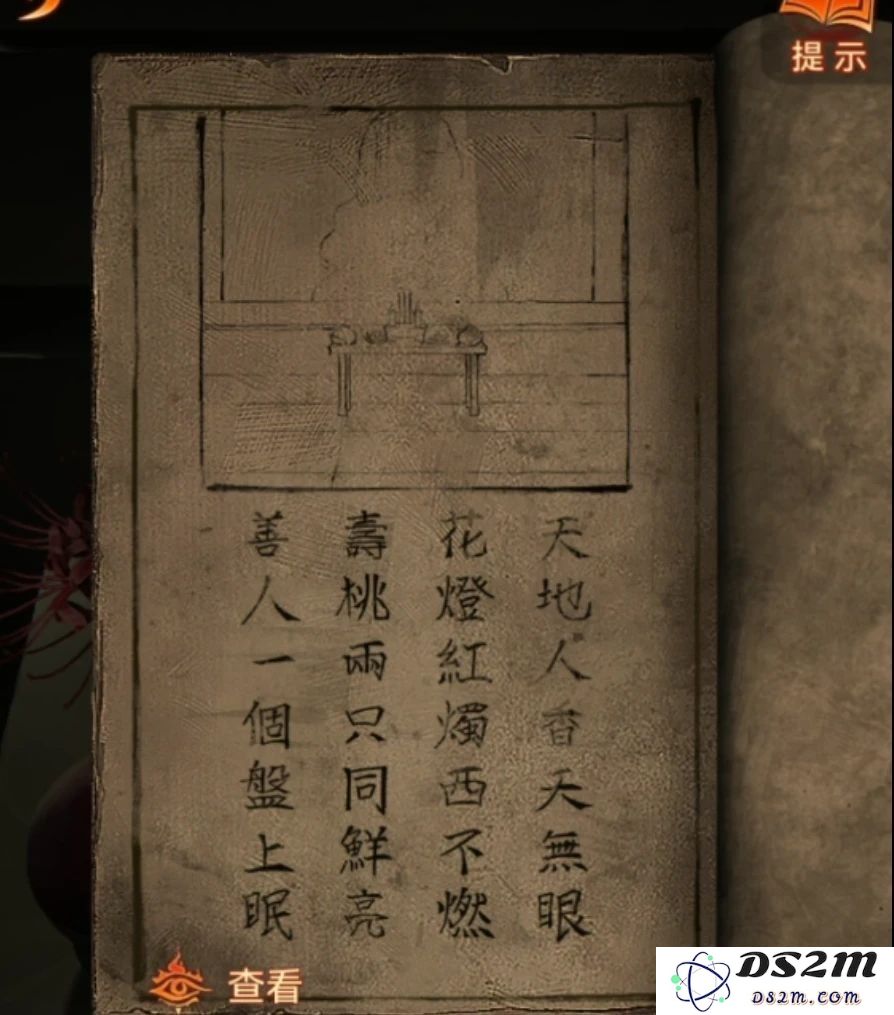 提示
天地人香天無眼
花燈紅燭西不燃
壽桃兩只同鮮亮
善人一個盤上眠
查看
DS2M
DS2M.COM